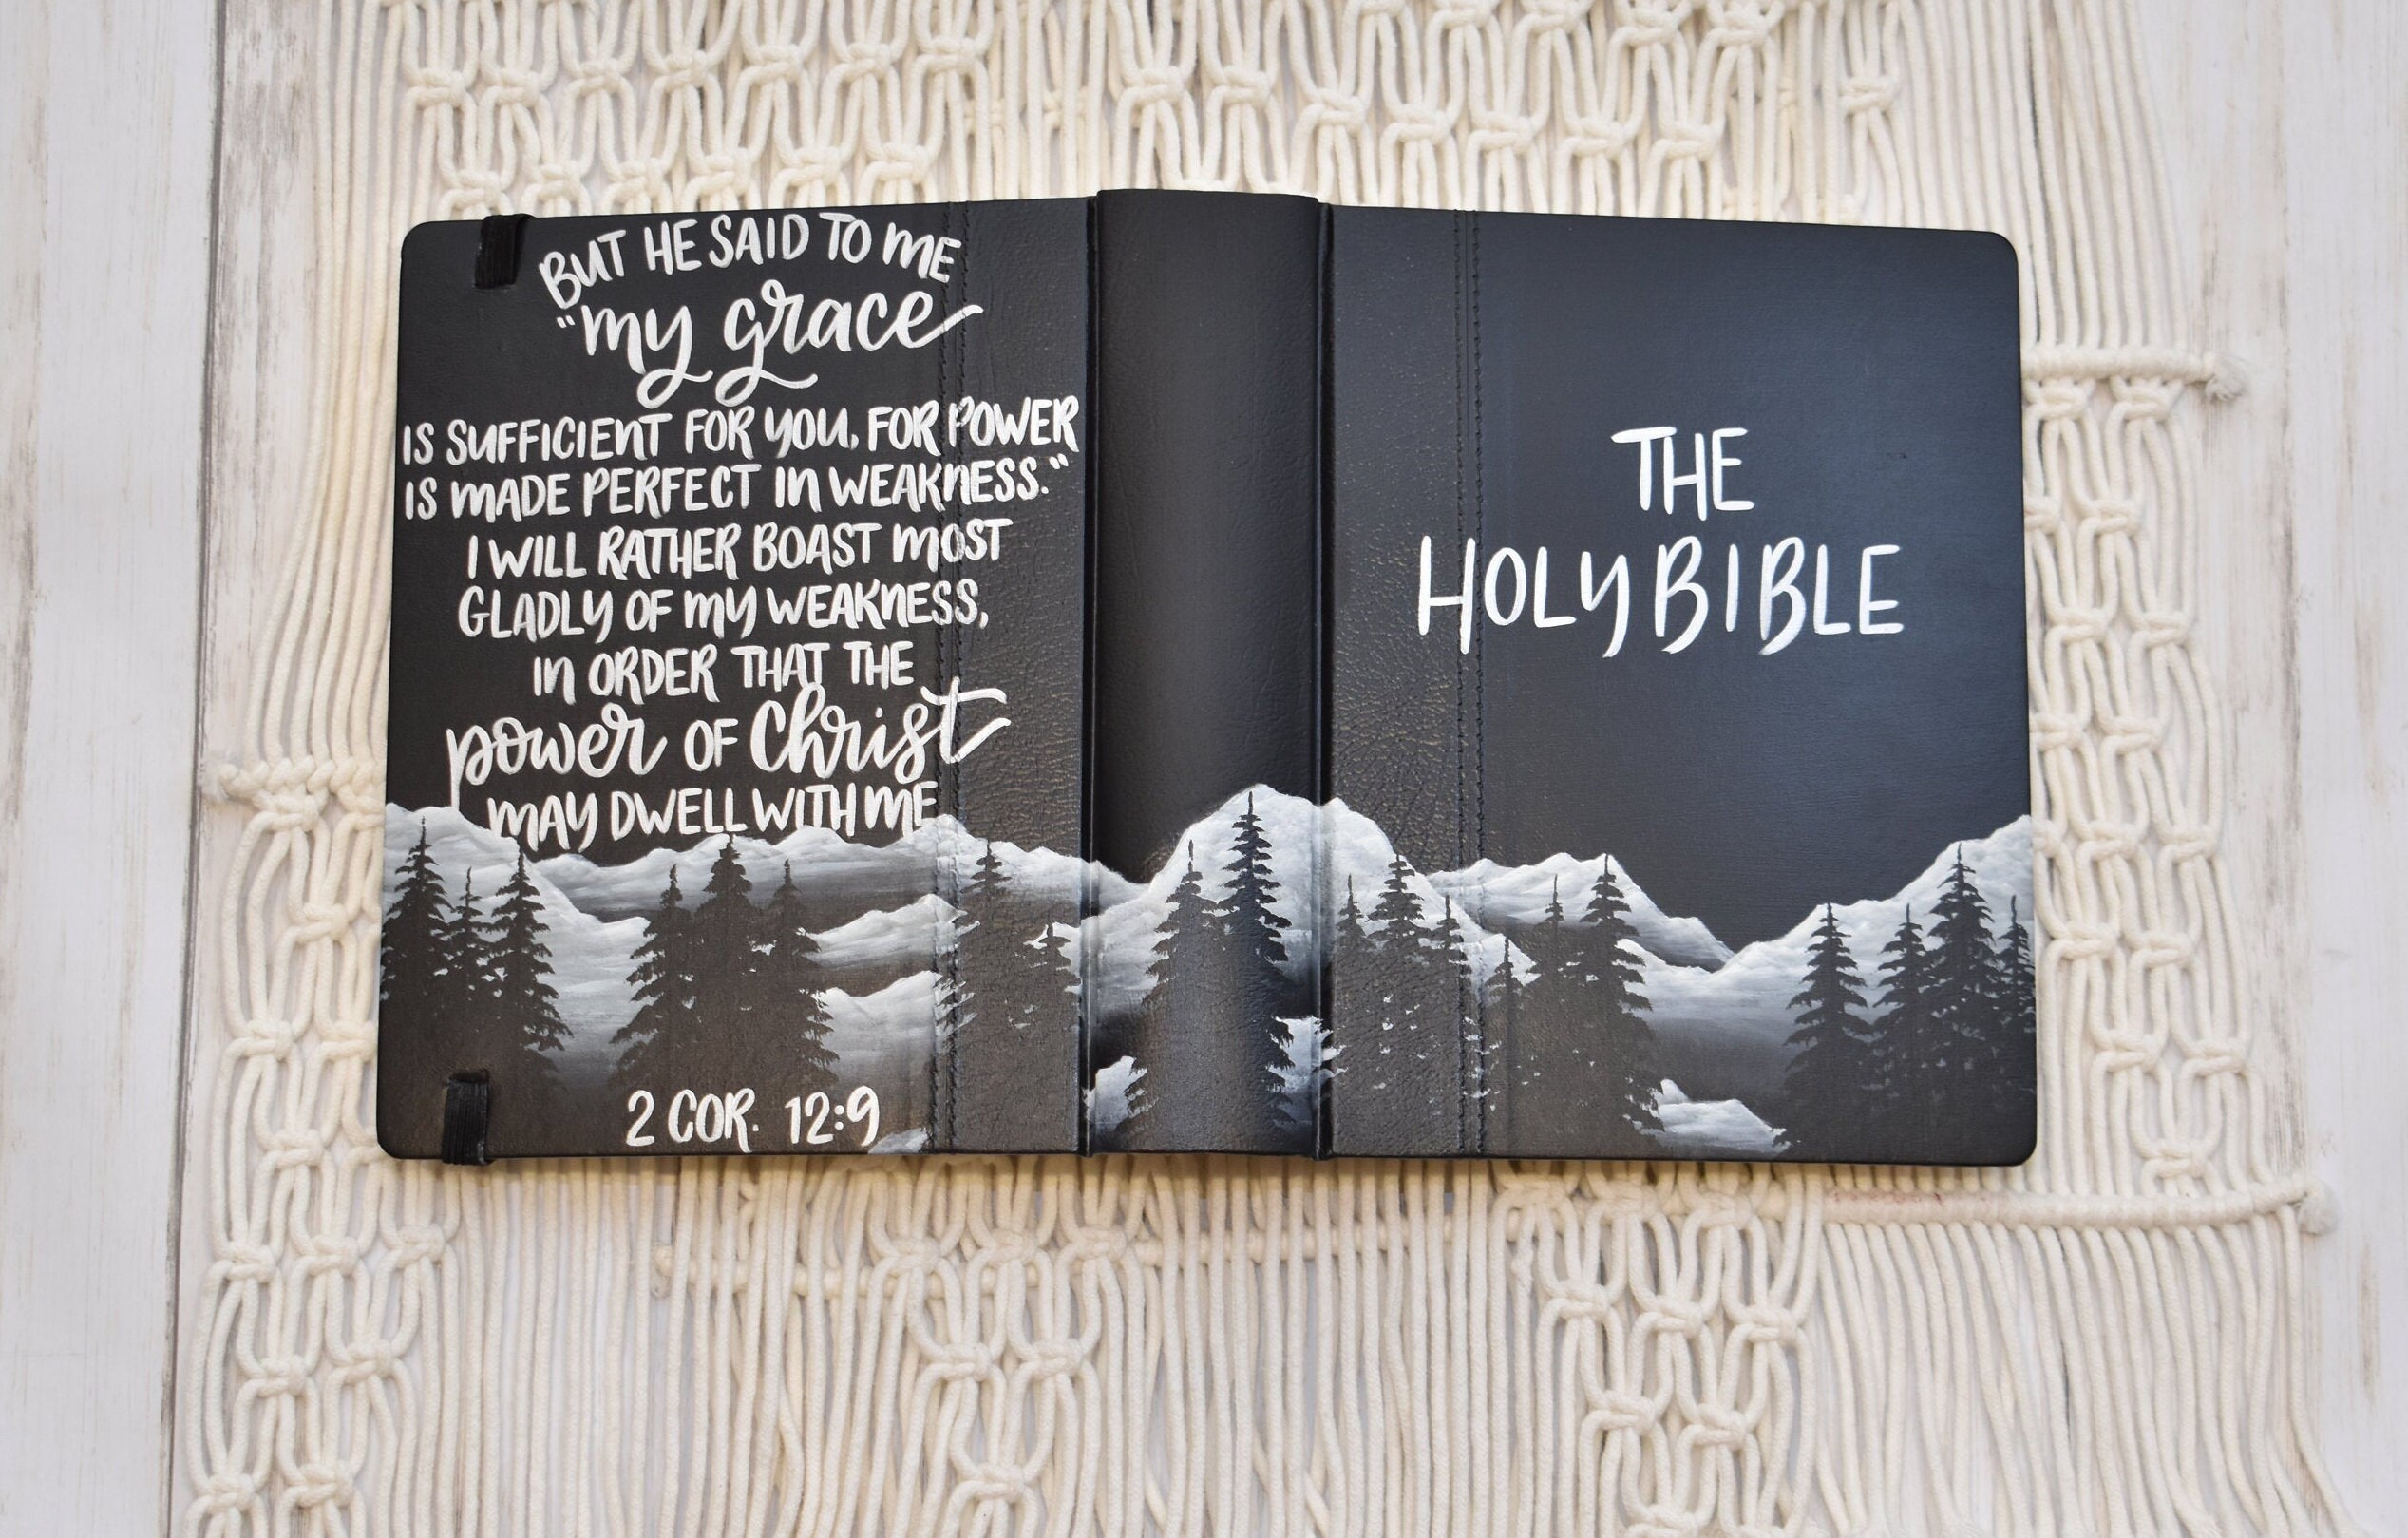 BUT HE SAID TO ME
"my grace
IS SUFFICIENT FOR YOU, FOR POWER
IS MADE PERFECT IN WEAKNESS."
I WILL RATHER BOAST MOST
GLADLY OF MY WEAKNESS,
IN ORDER THAT THE
power OF Christ
MAY DWELL WITH ME
2 COR. 12:9
THE
HOLY BIBLE